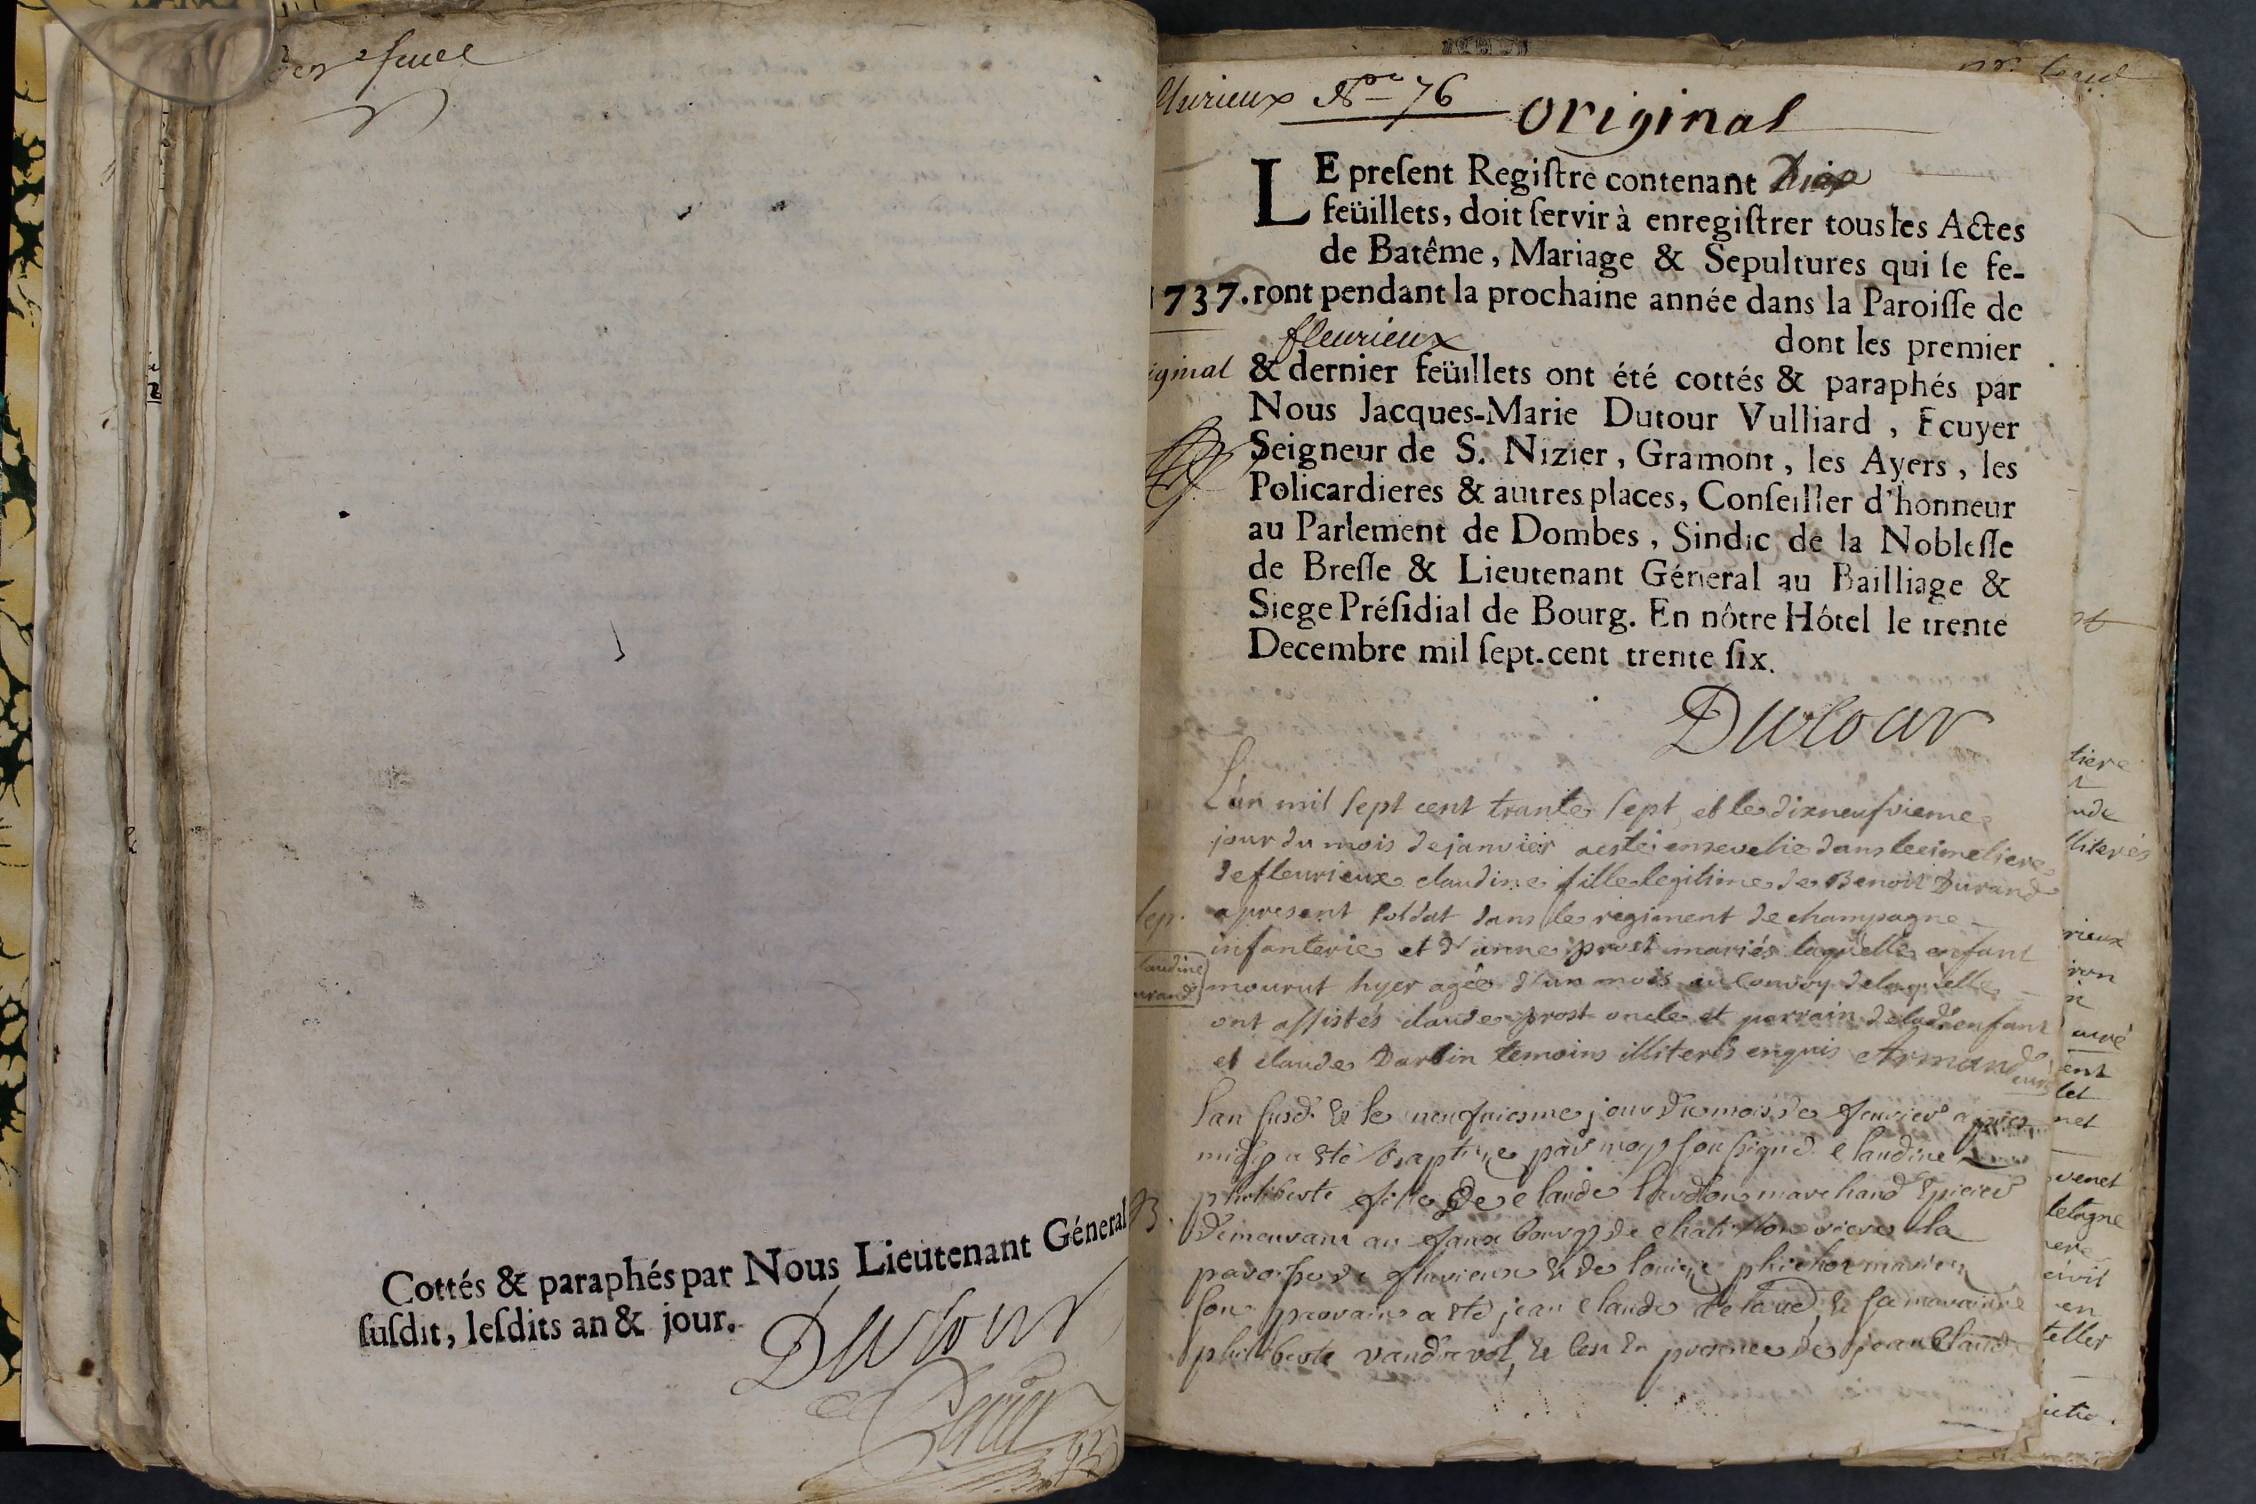 feuil
Cottés & paraphés par Nous Lieutenant Géneral
susdit, lesdits an & jour.
Dutour
fleurieux No 76
original
LE present Registre contenant Dix
feüillets, doit servir à enregistrer tous les Actes
de Batême, Mariage & Sepultures qui se fe-
1737. ront pendant la prochaine année dans la Paroisse de
fleurieux dont les premier
& dernier feüillets ont été cottés & paraphés par
Nous Jacques-Marie Dutour Vulliard, Ecuyer
Seigneur de S. Nizier, Gramont, les Ayers, les
Policardieres & autres places, Conseiller d'honneur
au Parlement de Dombes, Sindic de la Noblesse
de Bresse & Lieutenant Géneral au Bailliage &
Siege Présidial de Bourg. En nôtre Hôtel le trente
Decembre mil sept-cent trente six.
Dutour
L'an mil sept cent trante sept et le dixneufvieme
jour du mois de janvier a estéi ensevelie dans le cimetiere
de fleurieux claudine fille legitime de Benoit Durand
apresent soldat dans le regiment de champagne
infanterie et d'anne prost mariés laquelle enfant
mourut hyer agée d'un mois au convoy de laquelle
ont assistés claude prost oncle et parrain de lad. enfant
et claude Darbin temoins illiterés enquis Armand curé
Sep.
Claudine
Durand
l'an susd. & le neufviesme jour du mois de feuvier apres
midy a esté baptisée par moy soussigné claudine
philiberte fille de claude marchand epicier
demeurant au faux bourg de chatillon riere la
paroisse de fleurieux & de mariés
son parrain a esté jean claude & sa maraine
philiberte & ce en presence de jean claude
B.